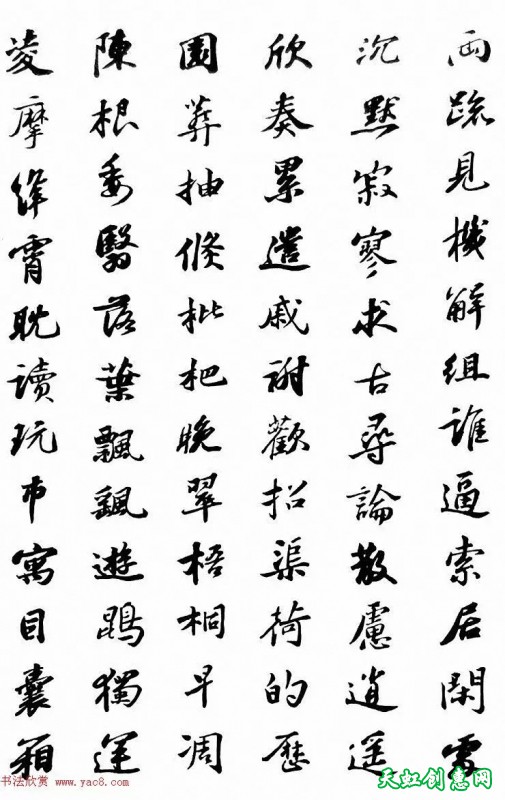 兩疏見機解組誰逼索居閑處
沉默寂寥求古尋論散慮逍遙
欣奏累遣戚謝歡招渠荷的歷
園莽抽條枇杷晚翠梧桐早凋
陳根委翳落葉飄颻遊鵾獨運
凌摩絳霄耽讀玩市寓目囊箱
书法欣赏 www.yac8.com
天虹创意网